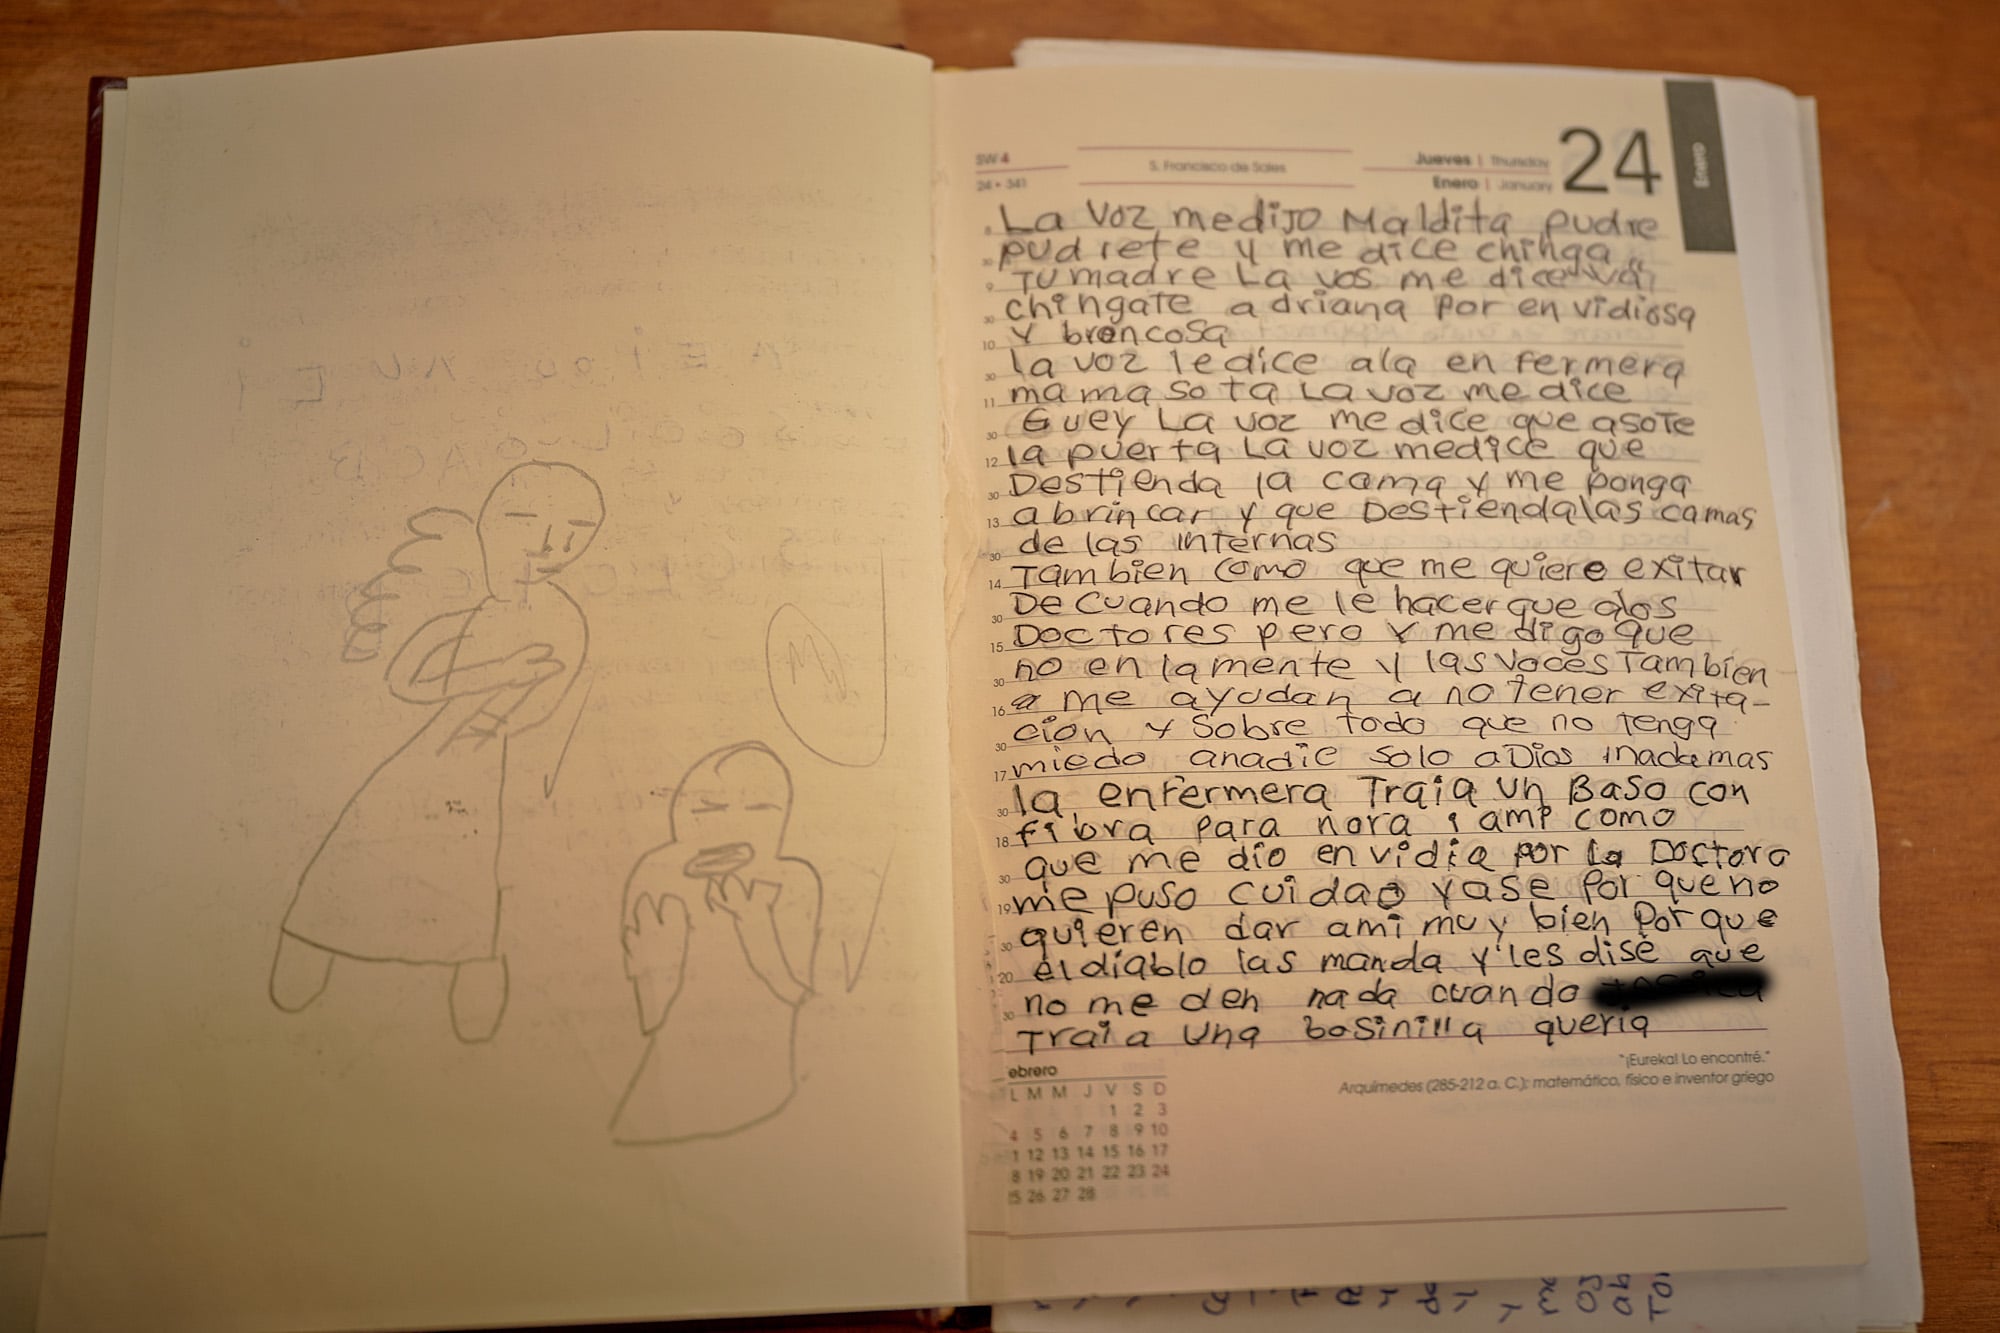 SW 4
24 • 341
S. Francisco de Sales
Jueves | Thursday
Enero | January
24
Enero
La voz medijo Maldita pudre
pudrete y me dice chinga
Tu madre La vos me dice va
chingate adriana por en vidiosa
y broncosa
la voz le dice ala en fermera
mama so ta La voz me dice
Guey La voz me dice que asote
la puerta La voz medice que
Destienda la cama y me ponga
abrincar y que Destiendalas camas
de las internas
Tambien como que me quiere exitar
De cuando me le hacerque alos
Doctores pero y me digo que
no en la mente y las voces Tambien
a me ayudan a no tener exita-
cion y sobre todo que no tenga
miedo anadie solo a Dios inadamas
la enfermera Traia un Baso con
fibra para nora i amp como
que me dio en vidia por la Doctora
me puso cuidao yase por que no
quieren dar ami muy bien Por que
el diablo las manda y les dise que
no me den nada cuando
Traia una bosinilla queria
8
30
9
30
10
30
11
30
12
30
13
30
14
30
15
30
16
30
17
30
18
30
19
30
20
30
"¡Eureka! Lo encontré."
Arquímedes (285-212 a. C.); matemático, físico e inventor griego
ebrero
L M M J V S D
1 2 3
4 5 6 7 8 9 10
1 12 13 14 15 16 17
8 19 20 21 22 23 24
5 26 27 28